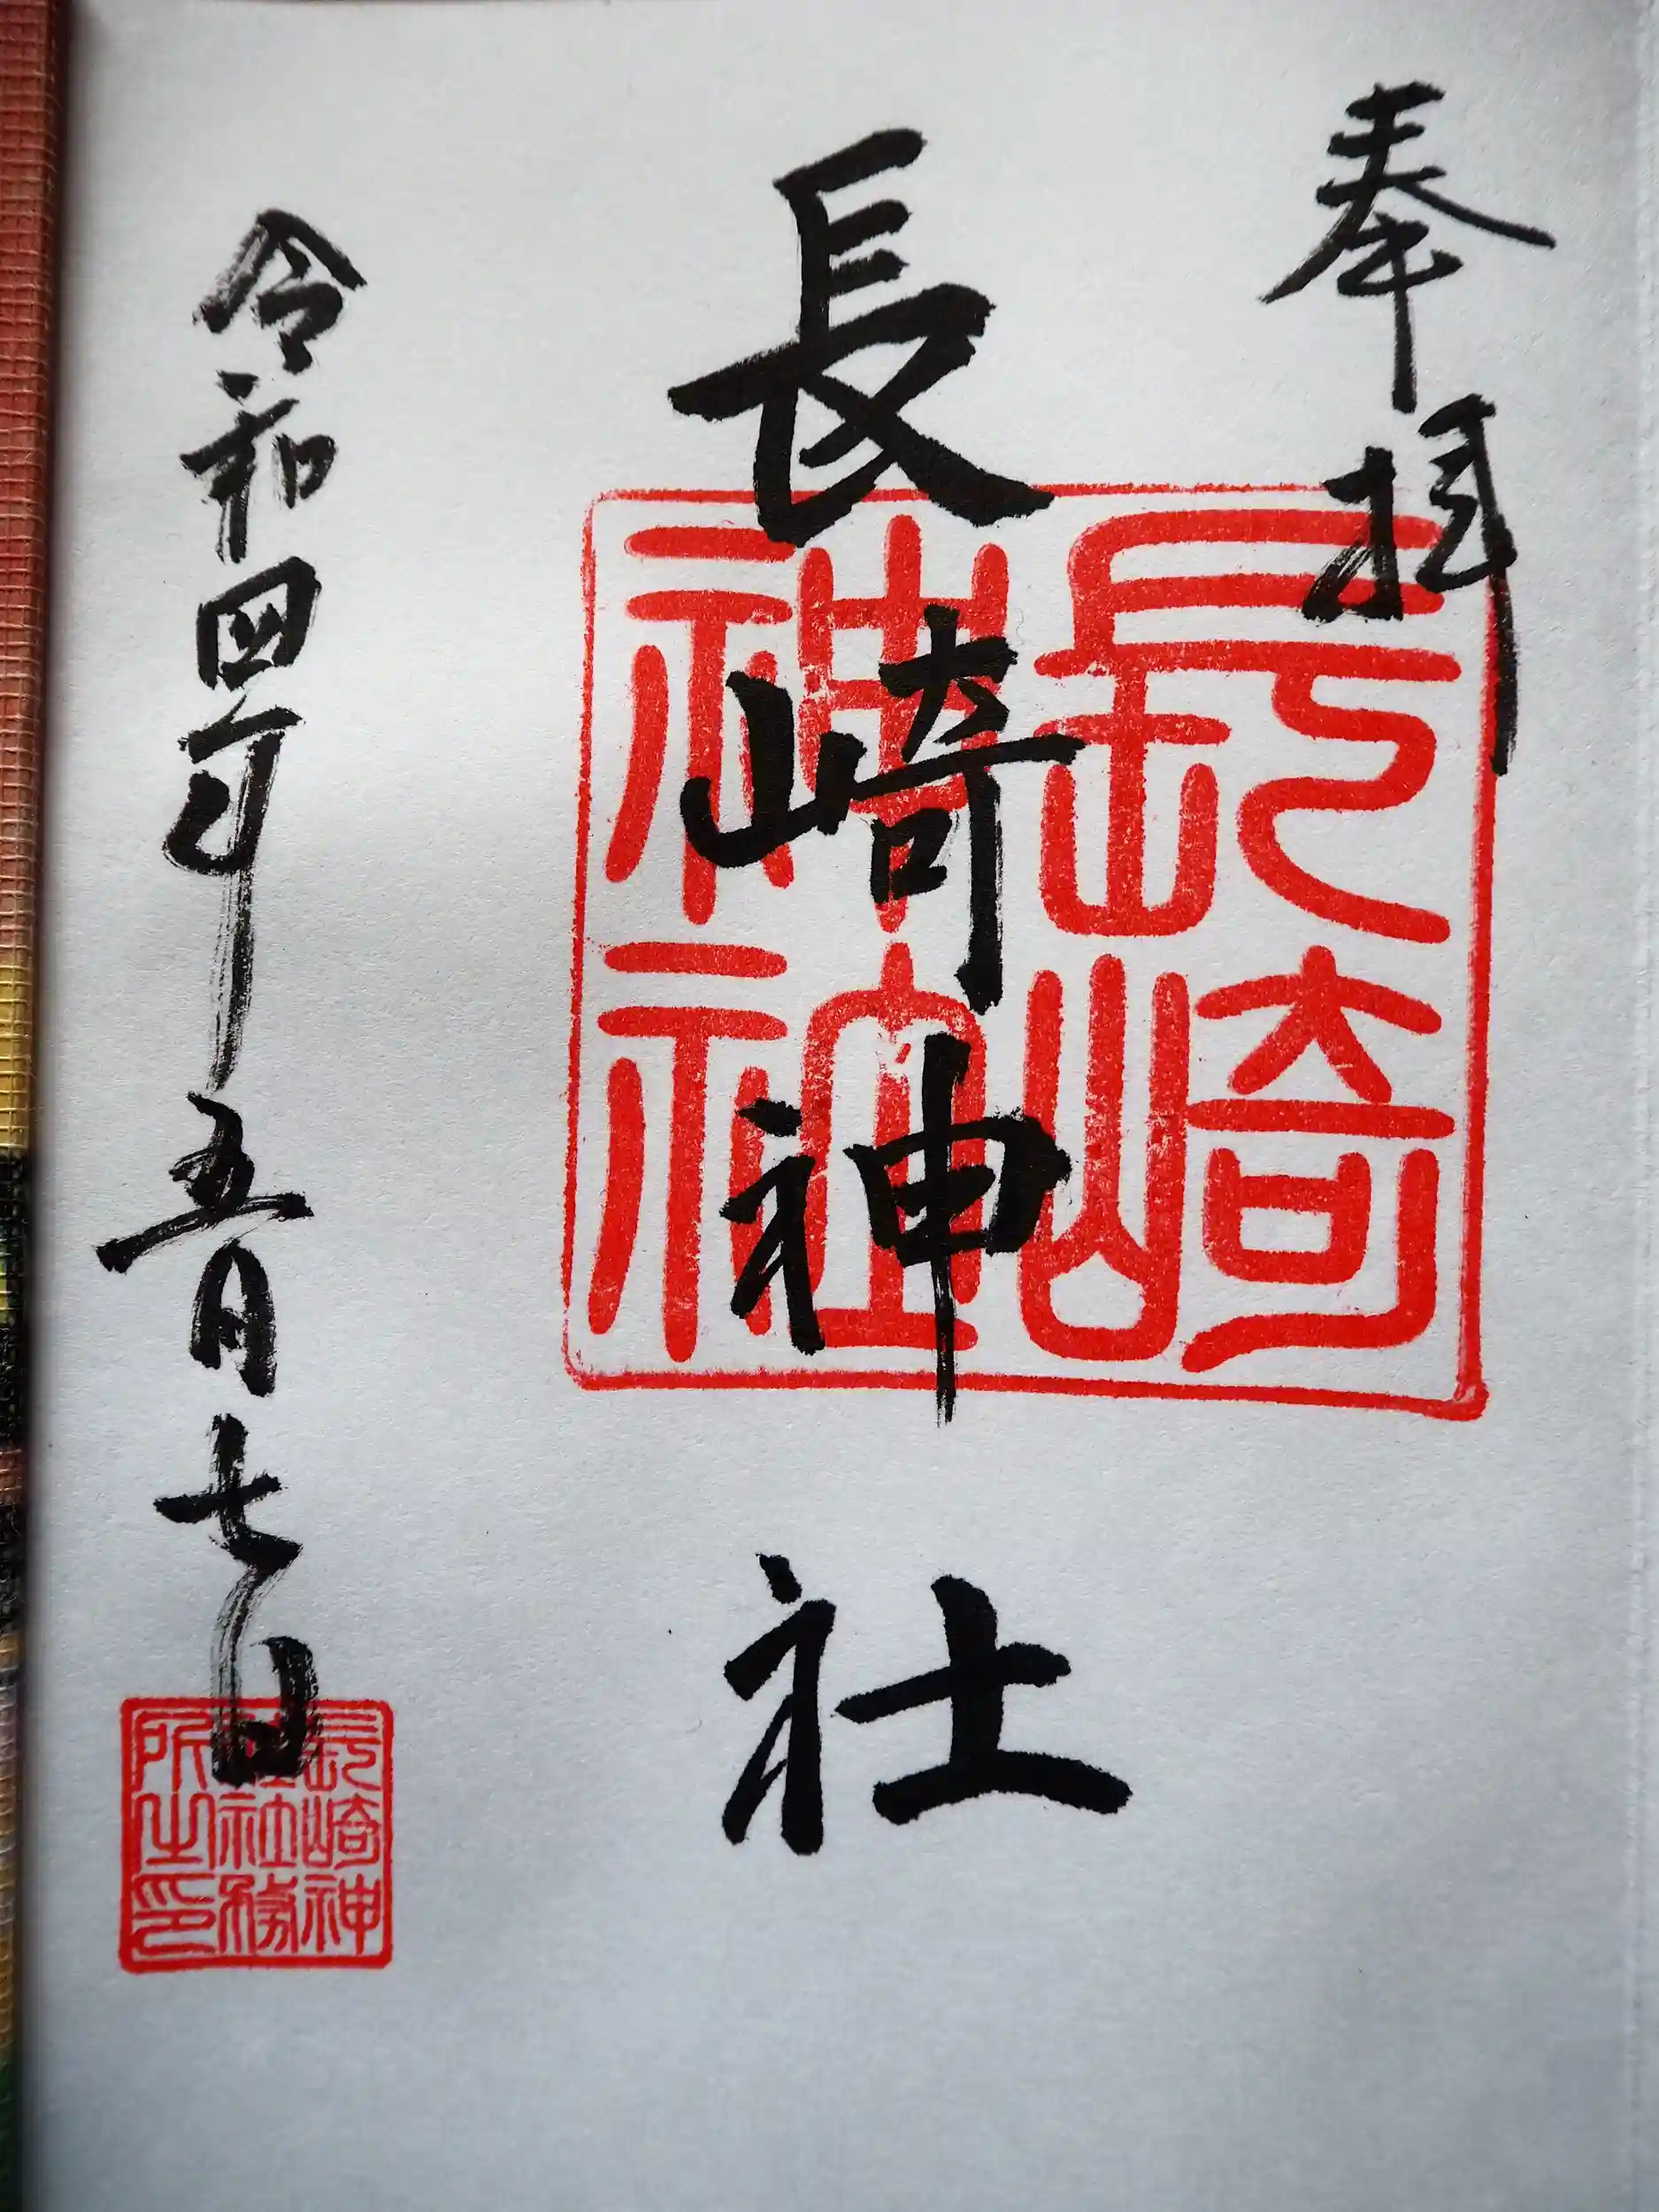 奉拝
長崎神社
長崎
神社
令和四年五月七日
長崎神
社務
所之印